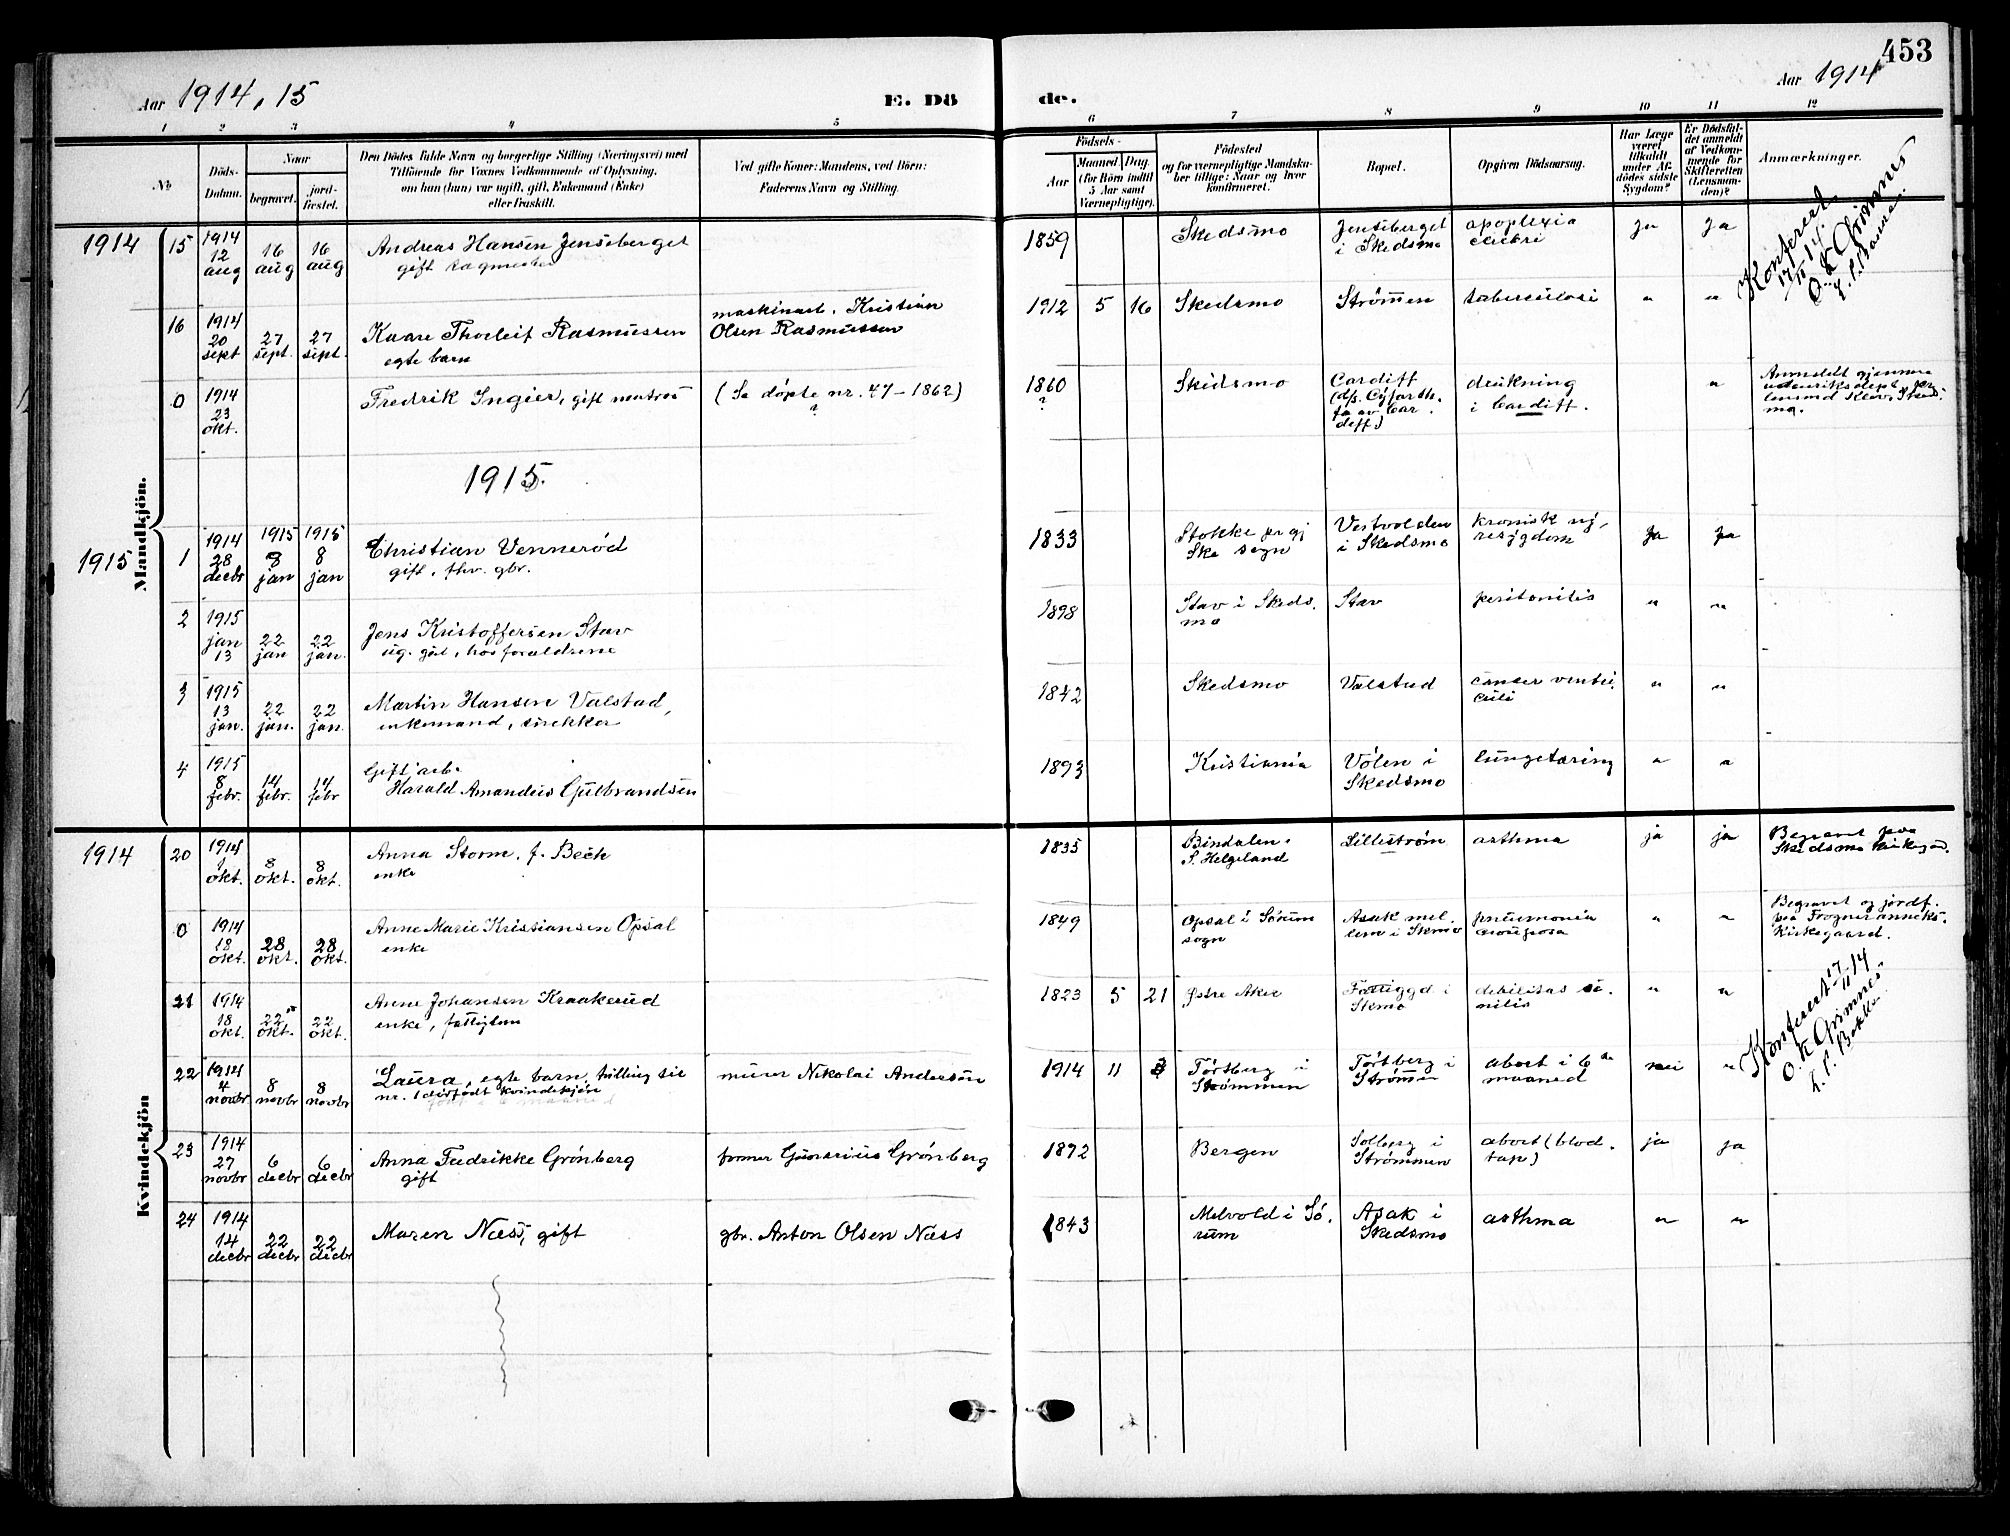 453
Aar 1914, 15
E. Dö
de.
Aar 1914
1 2 3 4 5 6 7 8 9 10 11 12
No
Döds-
Datum.
Naar
begravet.
jord-
fæstet.
Den Dödes fulde Navn og borgerlige Stilling (Næringsvei) med
Tilföiende for Voxnes Vedkommende af Oplysning,
om han (hun) var ugift, gift, Enkemand (Enke)
eller fraskilt.
Ved gifte Koner: Mandens, ved Börn:
Faderens Navn og Stilling.
Födsels-
Aar
Maaned. Dag.
(for Börn indtil
5 Aar samt
Værnepligtige).
Födested
og for værnepligtige Mandska-
ber tillige: Naar og hvor
konfirmeret.
Bopæl.
Opgiven Dödsaarsag.
Har Læge
været
tilkaldt
under Af-
dödes sidste
Sygdom?
Er Dödsfal-
det anmeldt
af Vedkom-
mende for
Skifteretten
(Lensman-
den)?
Anmærkninger.
Mandkjön.
1914
15 1914 12 aug 16 aug 16 aug Andreas Hansen Jenseberget
gift
1859 Skedsmo Jenseberget i Skedsmo apoplexia cerebri ja ja
Konfereret
O. K. Grimnes
16 1914 20 sept 27 sept. 27 sept. Kaare Thorleif Rasmussen
egte barn
maskinarb. Kristian
Olsen Rasmussen
1912 5 16 Skedsmo Strømmen tuberculosi " "
0 1914 23 okt. Fredrik Ingier, gift matros
(Se døpte nr. 47 – 1862)
?
1860 ? Skedsmo Cardiff drukning
i Cardiff. "
Anmeldt gjennem
1915.
1915
1 1914 28 decbr 1915 8 jan 1915 8 jan Christian Vennerød
gift, fhv. gbr.
1833 Stokke Vestvolden
i Skedsmo kronisk ny-
resygdom Ja Ja
2 1915 jan 13 22 jan 22 jan. Jens Kristoffersen Stav
ug. gut, hos forældrene
1898 Stav i Skeds-
mo Stav peritonitis " "
3 1915 13 jan. 22 jan. 22 jan. Martin Hansen Valstad,
enkemand, snekker
1842 Skedsmo Valstad cancer ventri-
culi " "
4 1915 8 febr. 14 febr. 14 febr Gift arb.
Harald Amandus Gulbrandsen
1893 Kristiania Vølen i
Skedsmo lungetæring " "
Kvindekjön
1914
20 1914 1 okt. 8 okt. 8 okt. Anna Storm, f. Beck
enke
1835 Bindalen,
S. Helgeland Lillestrøm asthma ja ja
Begravet paa
Skedsmo kirkegd.
0 1914 18 okt. 28 okt. 28 okt. Anne Marie Kristiansen Opsal
enke
1849 Opsal i Sørum
sogn Asak mel-
lem i Skmo pneumonia
crouposa " "
Begravet og jordf.
paa Frogner anneks-
kirkegaard.
21 1914 18 okt. 22 okt. 22 okt. Anne Johansen Kraakerud
enke, fattiglem
1823 5 21 Østre Aker Fattiggd i
Skmo debilitas se-
nilis " "
Konfereret 17/11-14
O. K. Grimnes
22 1914 4 novbr 8 novbr 8 novbr Laura, egte barn, tvilling til
nr. 1 dødfødt kvindekjøn
murer Nikolai Andersen
1914 11 Tørtberg i
Strømmen Tørtberg i
Strømmen abort i 6te
maaned nei "
23 1914 27 novbr 6 decbr 6 decbr Anna Fredrikke Grønberg
gift
former Gunarius Grønberg
1872 Bergen Solberg i
Strømmen abort (blod-
tap) ja ja
24 1914 14 decbr 22 decbr 22 decbr Maren Næss, gift
gbr. Anton Olsen Næss
1843 Melvold i Sø-
rum Asak i
Skedsmo asthma " "